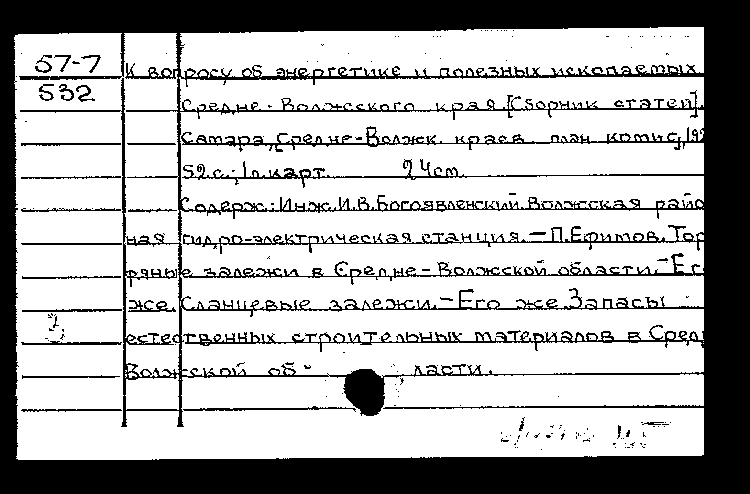 57-7
532
К вопросу об энергетике и полезных ископаемых
Средне-Волжского края. [Сборник статей].
Самара, Средне-Волжск. краев. план комис., 192
52 с.; 1 л. карт. 24 см.
Содерж: Инж. И.В. Богоявленский. Волжская райо
ная гидро-электрическая станция. — П. Ефимов. Тор
фяные залежи в Средне-Волжской области. — Ег
же. Сланцевые залежи. — Его же. Запасы
естественных строительных материалов в Сред
Волжской об ласти.